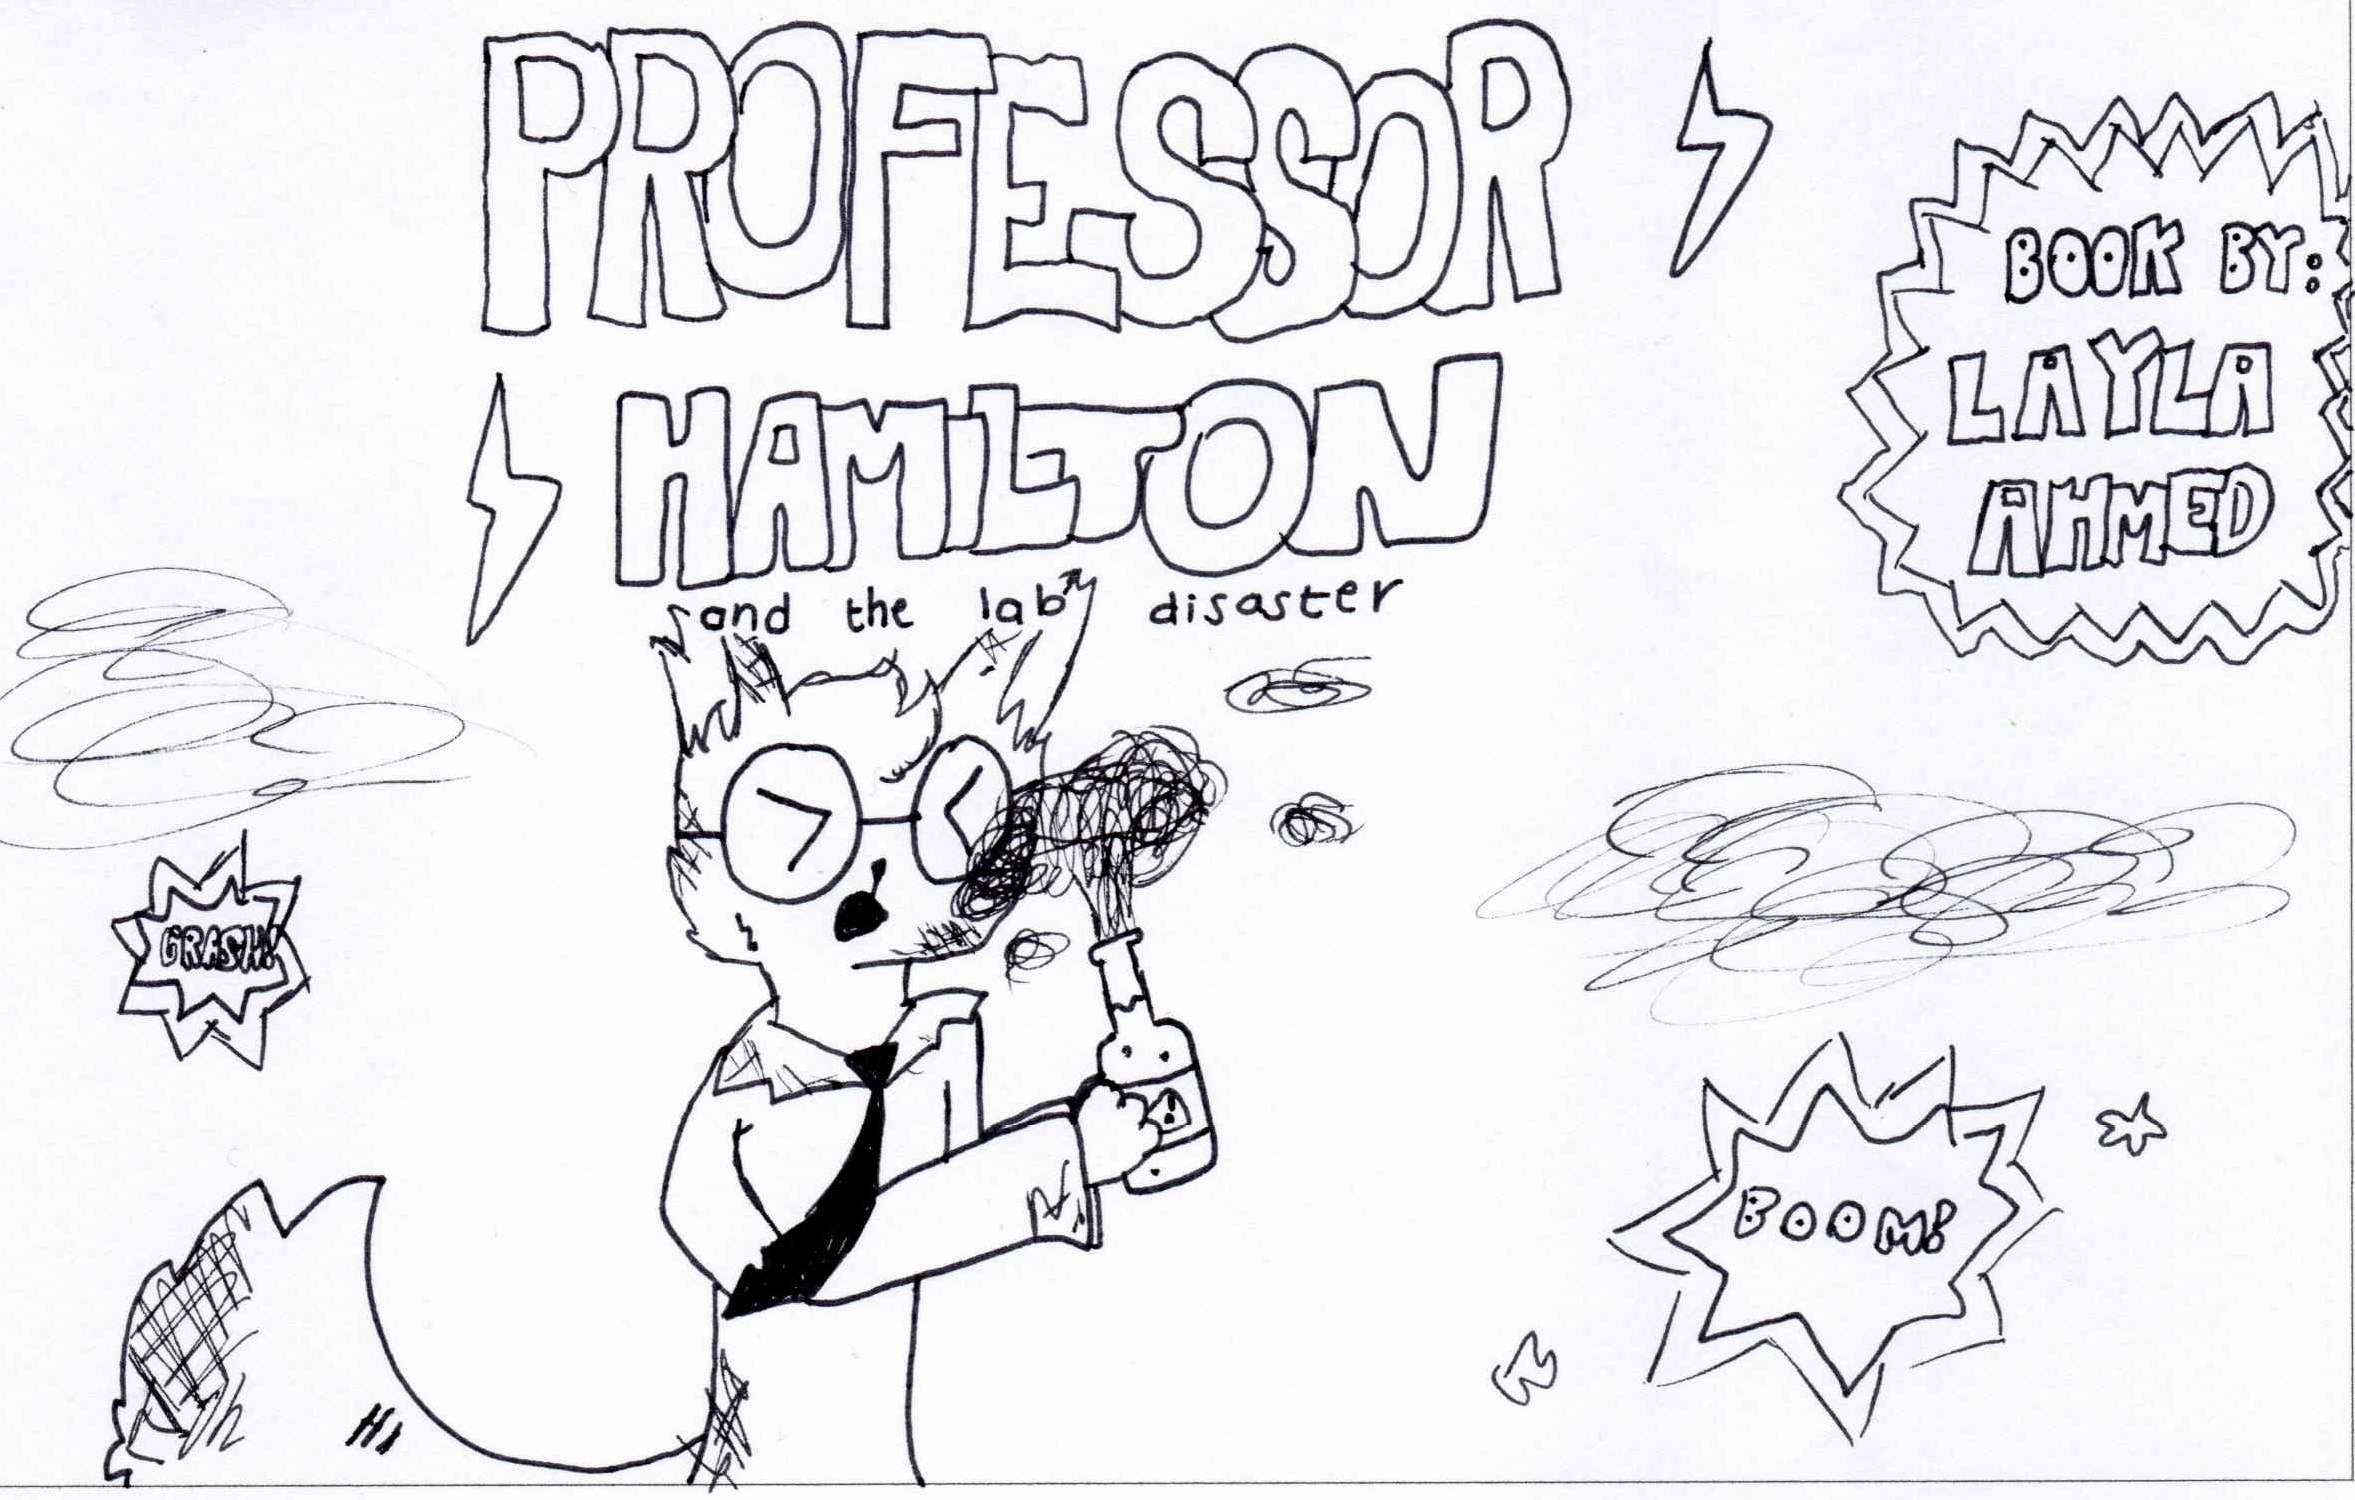 PROFESSOR
HAMILTON
and the lab disaster
BOOK BY:
LAYLA
AHMED
CRASH!
BOOM!